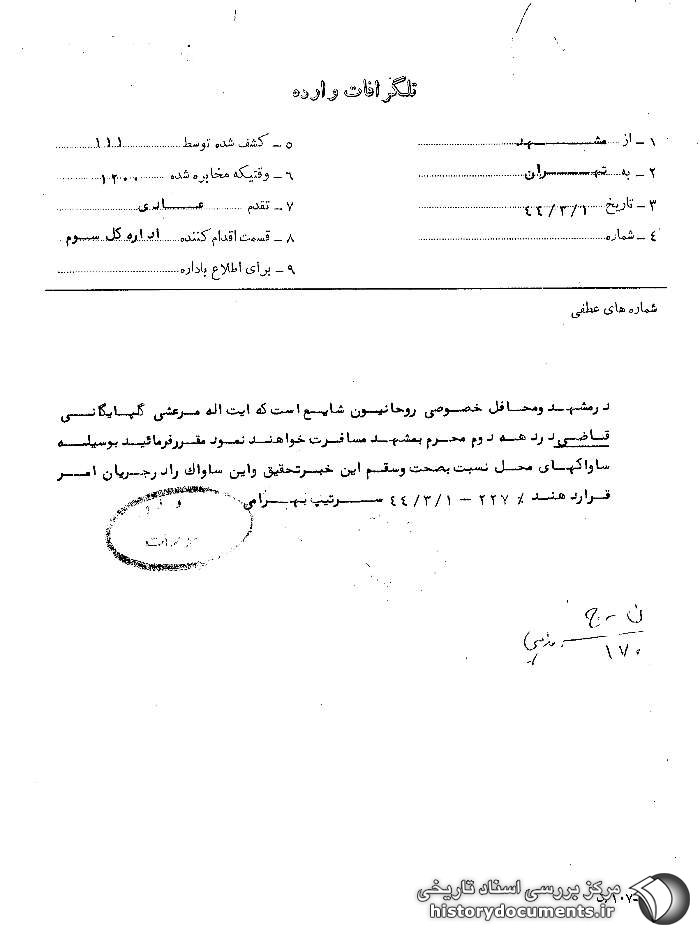 تلگرافات وارده
۱ – از مشهد
۲ – به تهران
۳ – تاریخ ۴۴/۳/۱
۴ – شماره
۵ – کشف شده توسط ۱۱۱
۶ – وقتیکه مخابره شده ۱۲۰۰
۷ – تقدم عادی
۸ – قسمت اقدام کننده اداره کل سوم
۹ – برای اطلاع باداره
شماره های عطفی
درمشهد ومحافل خصوصی روحانیون شایع است که ایت اله مرعشی گلپایگانی
قاضی درد هه دوم محرم بمشهد مسافرت خواهند نمود مقررفرمائید بوسیله
ساواکهای محل نسبت بصحت وسقم این خبرتحقیق واین ساواک رادرجریان امر
قراردهند ٪ ۲۲۷ – ۴۴/۳/۱ سرتیپ بهرامی
ن - ج
۱۷۰
مرکز بررسی اسناد تاریخی
historydocuments.ir